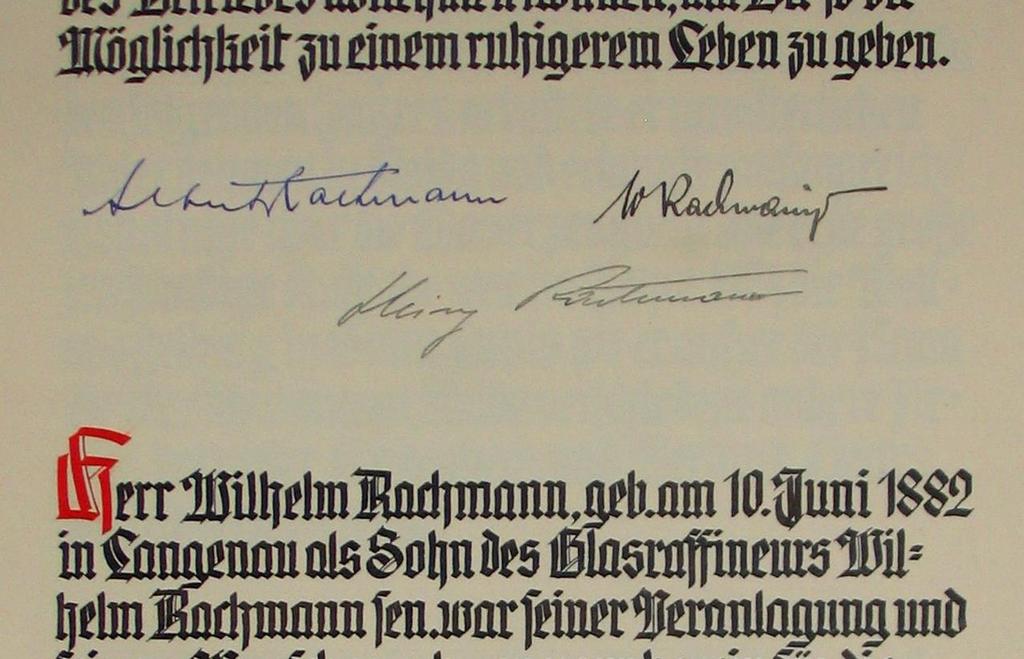 des Betriebes abnehmen können, um Dir so die
Möglichkeit zu einem ruhigerem Leben zu geben.
Albert Rachmann W Rachmann
Heinz Rachmann
Herr Wilhelm Rachmann, geb. am 10. Juni 1882
in Langenau als Sohn des Glasraffineurs Wil=
helm Rachmann sen. war seiner Veranlagung und